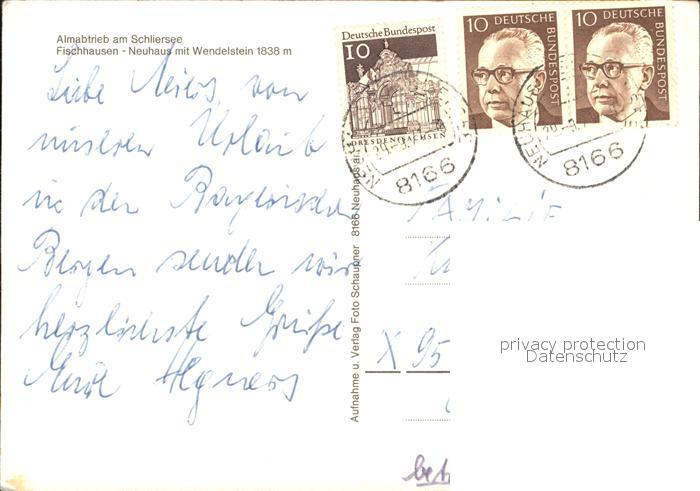 Almabtrieb am Schliersee
Fischhausen - Neuhaus mit Wendelstein 1838 m
Liebe von
unseren Urlaub
in den Bayerischen
Bergen senden wir
herzlichste Grüße
Eure
Deutsche Bundespost
10
DRESDEN/SACHSEN
10 DEUTSCHE
BUNDESPOST
10 DEUTSCHE
BUNDESPOST
NEUHAUS
8166
NEUHAUS
8166
Aufnahme u. Verlag Foto Schaupner 8166 Neuhaus
FAMILIE
X 95
privacy protection
Datenschutz